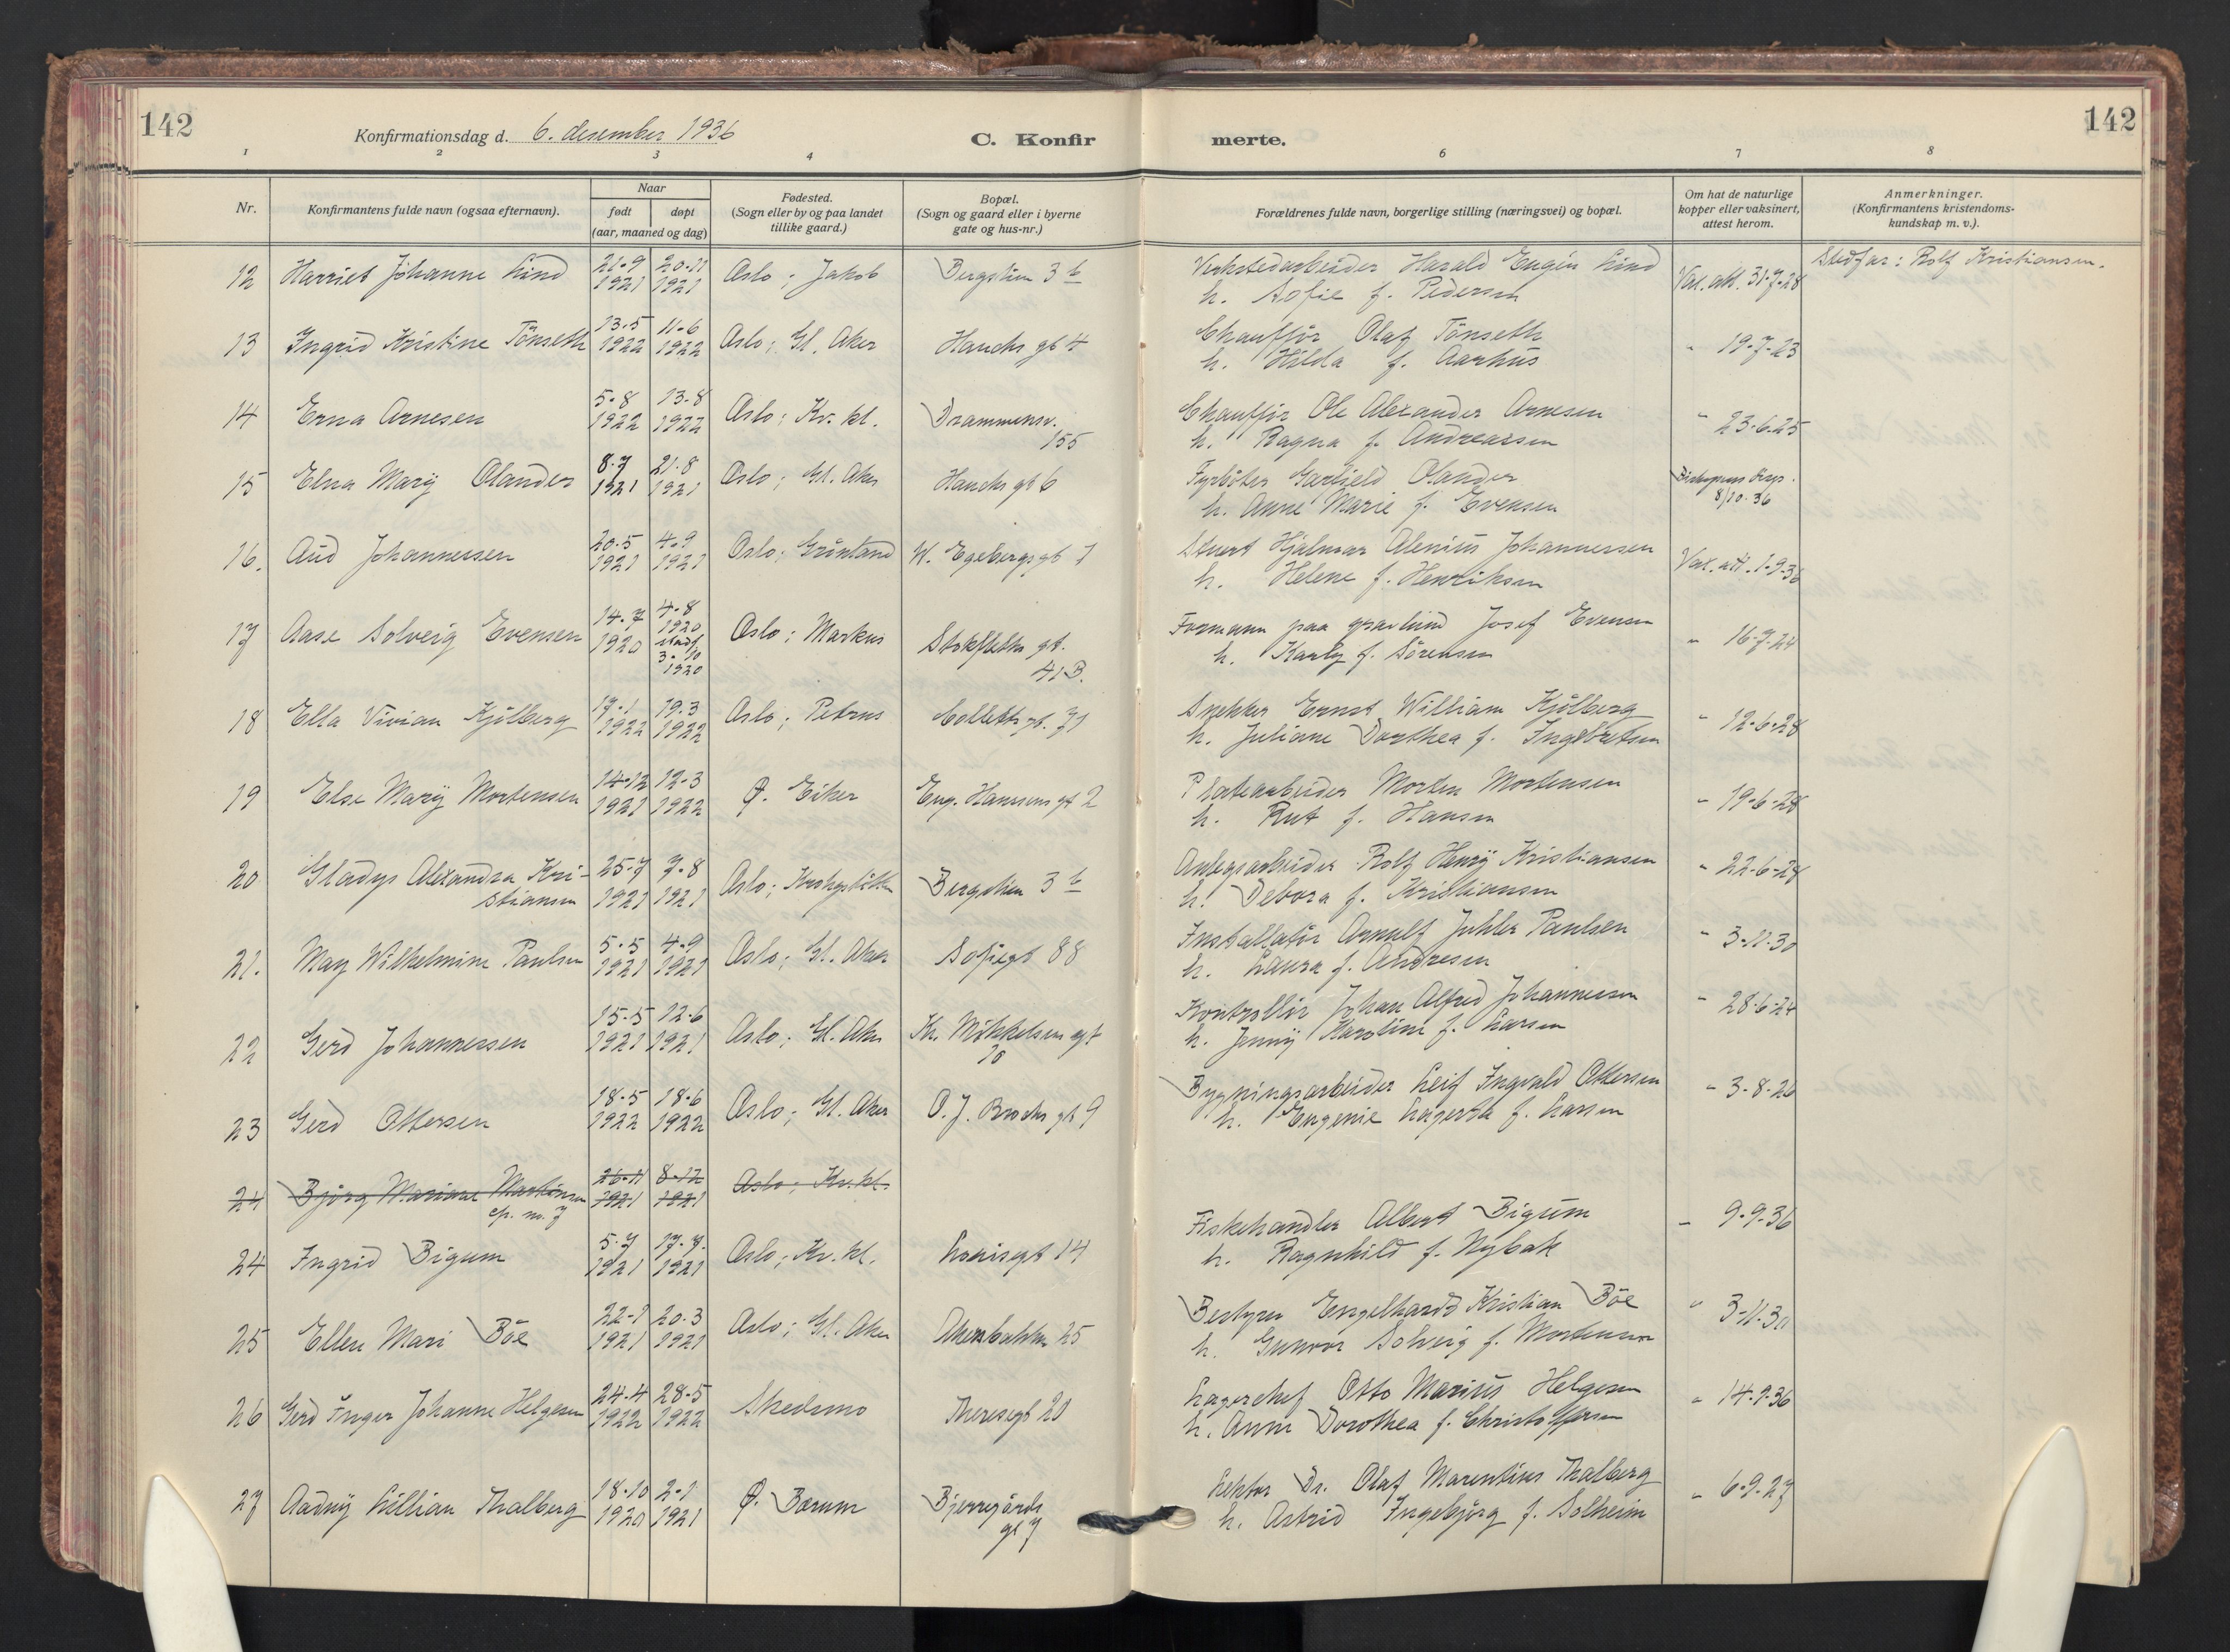 142
Konfirmationsdag d. 6. desember 1936
C. Konfir
merte.
142
1 2 3 4 6 7 8
Nr.
Konfirmantens fulde navn (ogsaa efternavn).
Naar
født døpt
(aar, maaned og dag)
Fødested.
(Sogn eller by og paa landet
tillike gaard.)
Bopæl.
(Sogn og gaard eller i byerne
gate og hus-nr.)
Forældrenes fulde navn, borgerlige stilling (næringsvei) og bopæl.
Om hat de naturlige
kopper eller vaksinert,
attest herom.
Anmerkninger.
(Konfirmantens kristendoms-
kundskap m. v.).
12 Harriet Johanne Lind 21-9 1921 20-11 1921 Oslo; Jakob Bergslien 3 b
Verkstedarbeider Harald Eugén Lind
h. Sofie f. Pedersen
Vax. att. 31-7-28
Stedfar: Rolf Kristiansen.
13 Ingrid Kristine Tönseth 13-5 1922 11-6 1922 Oslo; Gl. Aker Hauchs gt 4
Chaufför Olaf Tönseth
h. Hilda f. Aarhus
" 19-7-23
14 Erna Arnesen 5-8 1922 13-8 1922 Oslo; Kv. kl. Drammensv.
155
Chaufför Ole Alexander Arnesen
h. Ragna f. Andreassen
" 23-6-25
15 Elna Marÿ Olander 8-7 1921 21-8 1921 Oslo; Gl. Aker Hauchs gt 6
Fyrböter Garfield Olander
h. Anne Marie f. Evensen
Biskopens disp.
8/10-36
16. Aud Johannessen 20-5 1921 4-9 1921 Oslo; Grönland W. Egebergsgt 7
Stuert Hjalmar Alenius Johannessen
h. Helene f. Henriksen
Vax. att. 1-9-36
17 Aase Solveig Evensen 14-7 1920 4-8 1920 stadf. 3-10 1920 Oslo; Markus Stokfleths gt.
41B.
Formann paa gravlund Josef Evensen
h. Karly f. Sörensen
" 16-7-24
18 Ella Vivian Kjölberg 17-1 1922 19-3 1922 Oslo; Petrus Colletts gt. 71
Snekker Ernst William Kjölberg
h. Juliane Dorthea f. Ingebretsen
" 12-6-28
19 Else Marÿ Mortensen 14-12 1921 12-3 1922 Ø. Eiker Eug. Hanssens gt 2
Platearbeider Morten Mortensen
h. Rut f. Hansen
" 19-6-28
20 Gladys Alexandra Kri-
stiansen 25-7 1921 7-8 1921 Oslo; Krohgstötten Bergslien 3 b
Anlegsarbeider Rolf Henrÿ Kristiansen
h. Debora f. Kristiansen
" 22-6-28
21. May Wilhelmine Paulsen 5-5 1921 4-9 1921 Oslo; Gl. Aker Sofiegt 88
Installatör Arnulf Juhler Paulsen
h. Laura f. Andresen
" 3-11-30
22 Gerd Johannessen 15-5 1921 12-6 1921 Oslo; Gl. Aker Kr. Mikkelsens gt
20
Kontrollör Johan Alfred Johannessen
h. Jenny Karoline f. Larsen
" 28-6-24
23 Gerd Ottersen 18-5 1922 18-6 1922 Oslo; Gl. Aker O. J. Brochs gt 9
Bygningsarbeider Leif Ingvald Ottersen
h. Eugenie Lagerta f. Larsen
" 3-8-26
24 Björg Mariane Martinsen
cfr. no. 7 26-11 1921 8-12 1921 Oslo; Kv. kl.
24 Ingrid Bigum 5-7 1921 17-7. 1921 Oslo; Kv. kl. Lovisegt 14
Fiskehandler Albert Bigum
h. Ragnhild f. Nybak
" 9-9-36
25 Ellen Mari Böe 22-1 1921 20-3 1921 Oslo; Gl. Aker Akersbakken 25
Bestyrer Engelhardt Kristian Böe
h. Gunvor Solveig f. Mortensen
" 3-11-30
26 Gerd Inger Johanne Helgesen 24-4 1922 28-5 1922 Skedsmo Theresegt 20
Lagerchef Otto Marius Helgesen
h. Anne Dorothea f. Christoffersen
" 14-9-36
27 Aadnÿ Lillian Thalberg 18-10 1920 2-1 1921 Ø. Bærum Bjerregårds
gt 7
Lektor Dr. Olaf Marentius Thalberg
h. Astrid Ingebjörg f. Solheim
" 6-9-27